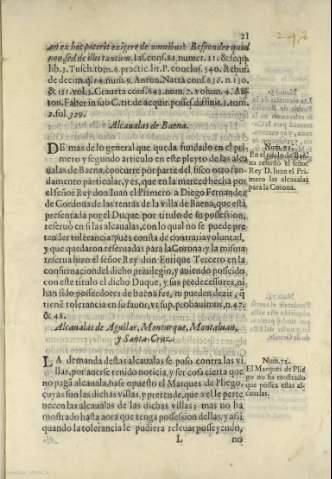 21
an ex hoc poterit exigere de omnibus. Respondet quod
non, sed de illis tantùm.
lib. 3. Tusch. tom. 6. practic. lit. P. conclus. 540. Rebuf.
de decim. q. 14. num. 9. Anton. Natta cons. 636. n. 130.
& 131. vol. 3.
2. fol. 329.
Alcaualas de Baena.
DEmas de lo general que queda fundado en el pri-
mero y segundo articulo en este pleyto de las alca-
ualas de Baena, concurre por parte del fisco otro fun-
damento particular, y es, que en la merced hecha por
el señor Rey don Iuan el Primero a Diego Fernandez
de Cordoua de las rentas de la villa de Baena, que està
presentada por el Duque por titulo de su possession,
reseruò en si las alcaualas, con lo qual no se puede pre-
tender tolerancia, pues consta de contraria voluntad,
y que quedaron reseruadas para la Corona: y la misma
reserua hizo el señor Rey don Enrique Tercero en la
confirmacion del dicho priuilegio, y auiendo posseido
con este titulo el dicho Duque, y sus predecessores, ni
han sido posseedores de buena fee, ni pueden dezir, q̃
tiene tolerancia en su fauor, vt sup. probauimus, n. 47.
& 48.
Num. 71.
En el titulo de Bae-
na reseruò el señor
Rey D. Iuan el Pri-
mero las alcaualas
para la Corona.
Alcaualas de Aguilar, Monturque, Montaluan,
y Santa Cruz.
LA demanda destas alcaualas se puso contra las vi-
llas, por auerse tenido noticia, y ser cosa cierta que
no pagã alcauala, hase opuesto el Marques de Pliego,
cuyas son las dichas villas, y pretende, que a el le perte-
necen las alcaualas de las dichas villas; mas no ha
mostrado hasta aora que tenga possession dellas, y assi
quando la tolerancia le pudiera releuar posseyendo,
Num. 72.
El Marques de Plie
go no ha mostrado
que possea estas al-
caualas.
L
no